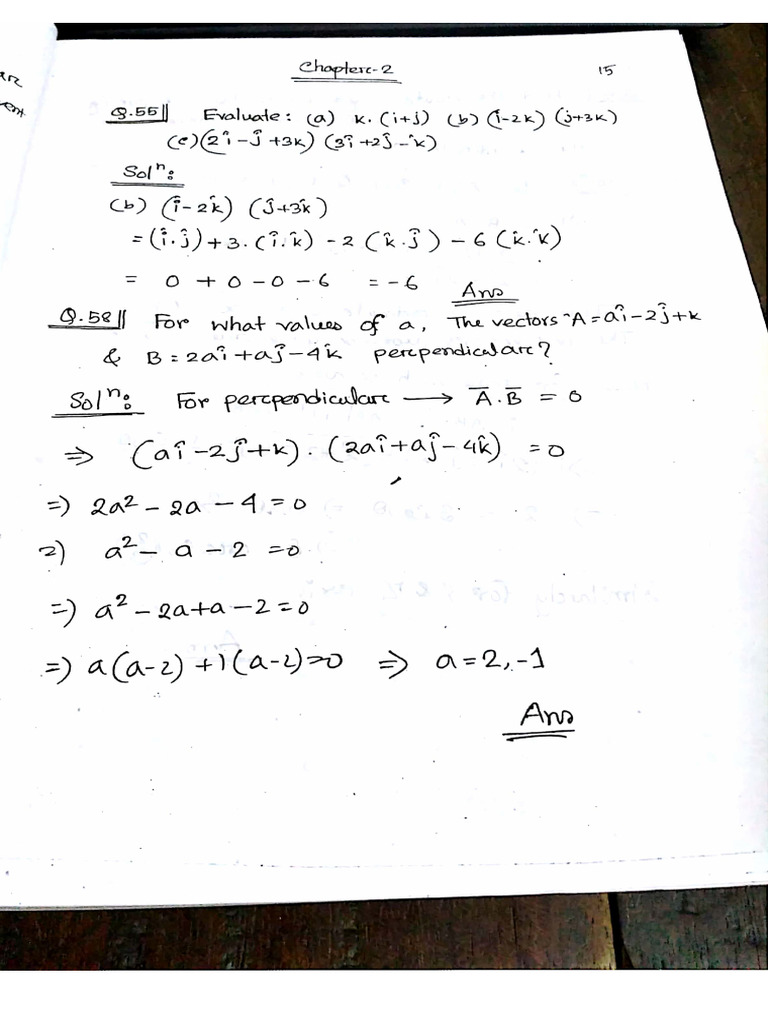 Chapterc-2
15
Q.55|| Evaluate: (a) k.(i+j) (b) (î-2k) (j+3k)
(c) (2î-ĵ+3k) (3î+2ĵ-k)
Solⁿ:
(b) (î-2k̂) (ĵ+3k̂)
=(î.ĵ)+3.(î.k̂) - 2(k̂.ĵ) - 6(k̂.k̂)
= 0 + 0 - 0 - 6 = -6 Ans
Q.58|| For what values of a, The vectors A = aî-2ĵ+k
& B = 2aî+aĵ-4k̂ percpendicularc?
Solⁿ: For percpendicularc ⟶ A̅.B̅ = 0
⇒ (aî-2ĵ+k).(2aî+aĵ-4k̂) = 0
=) 2a² - 2a - 4 = 0
=) a² - a - 2 = 0
=) a² - 2a + a - 2 = 0
=) a(a-2) + 1(a-2)=0 ⇒ a = 2, -1
Ans